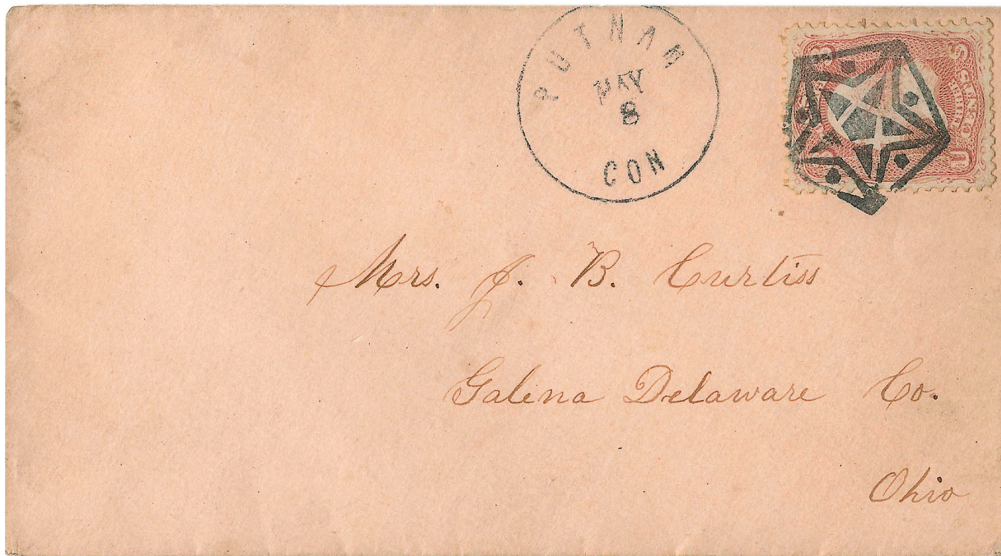 PUTNAM
MAY
8
CON
Mrs. J. B. Curtiss
Galena Delaware Co.
Ohio